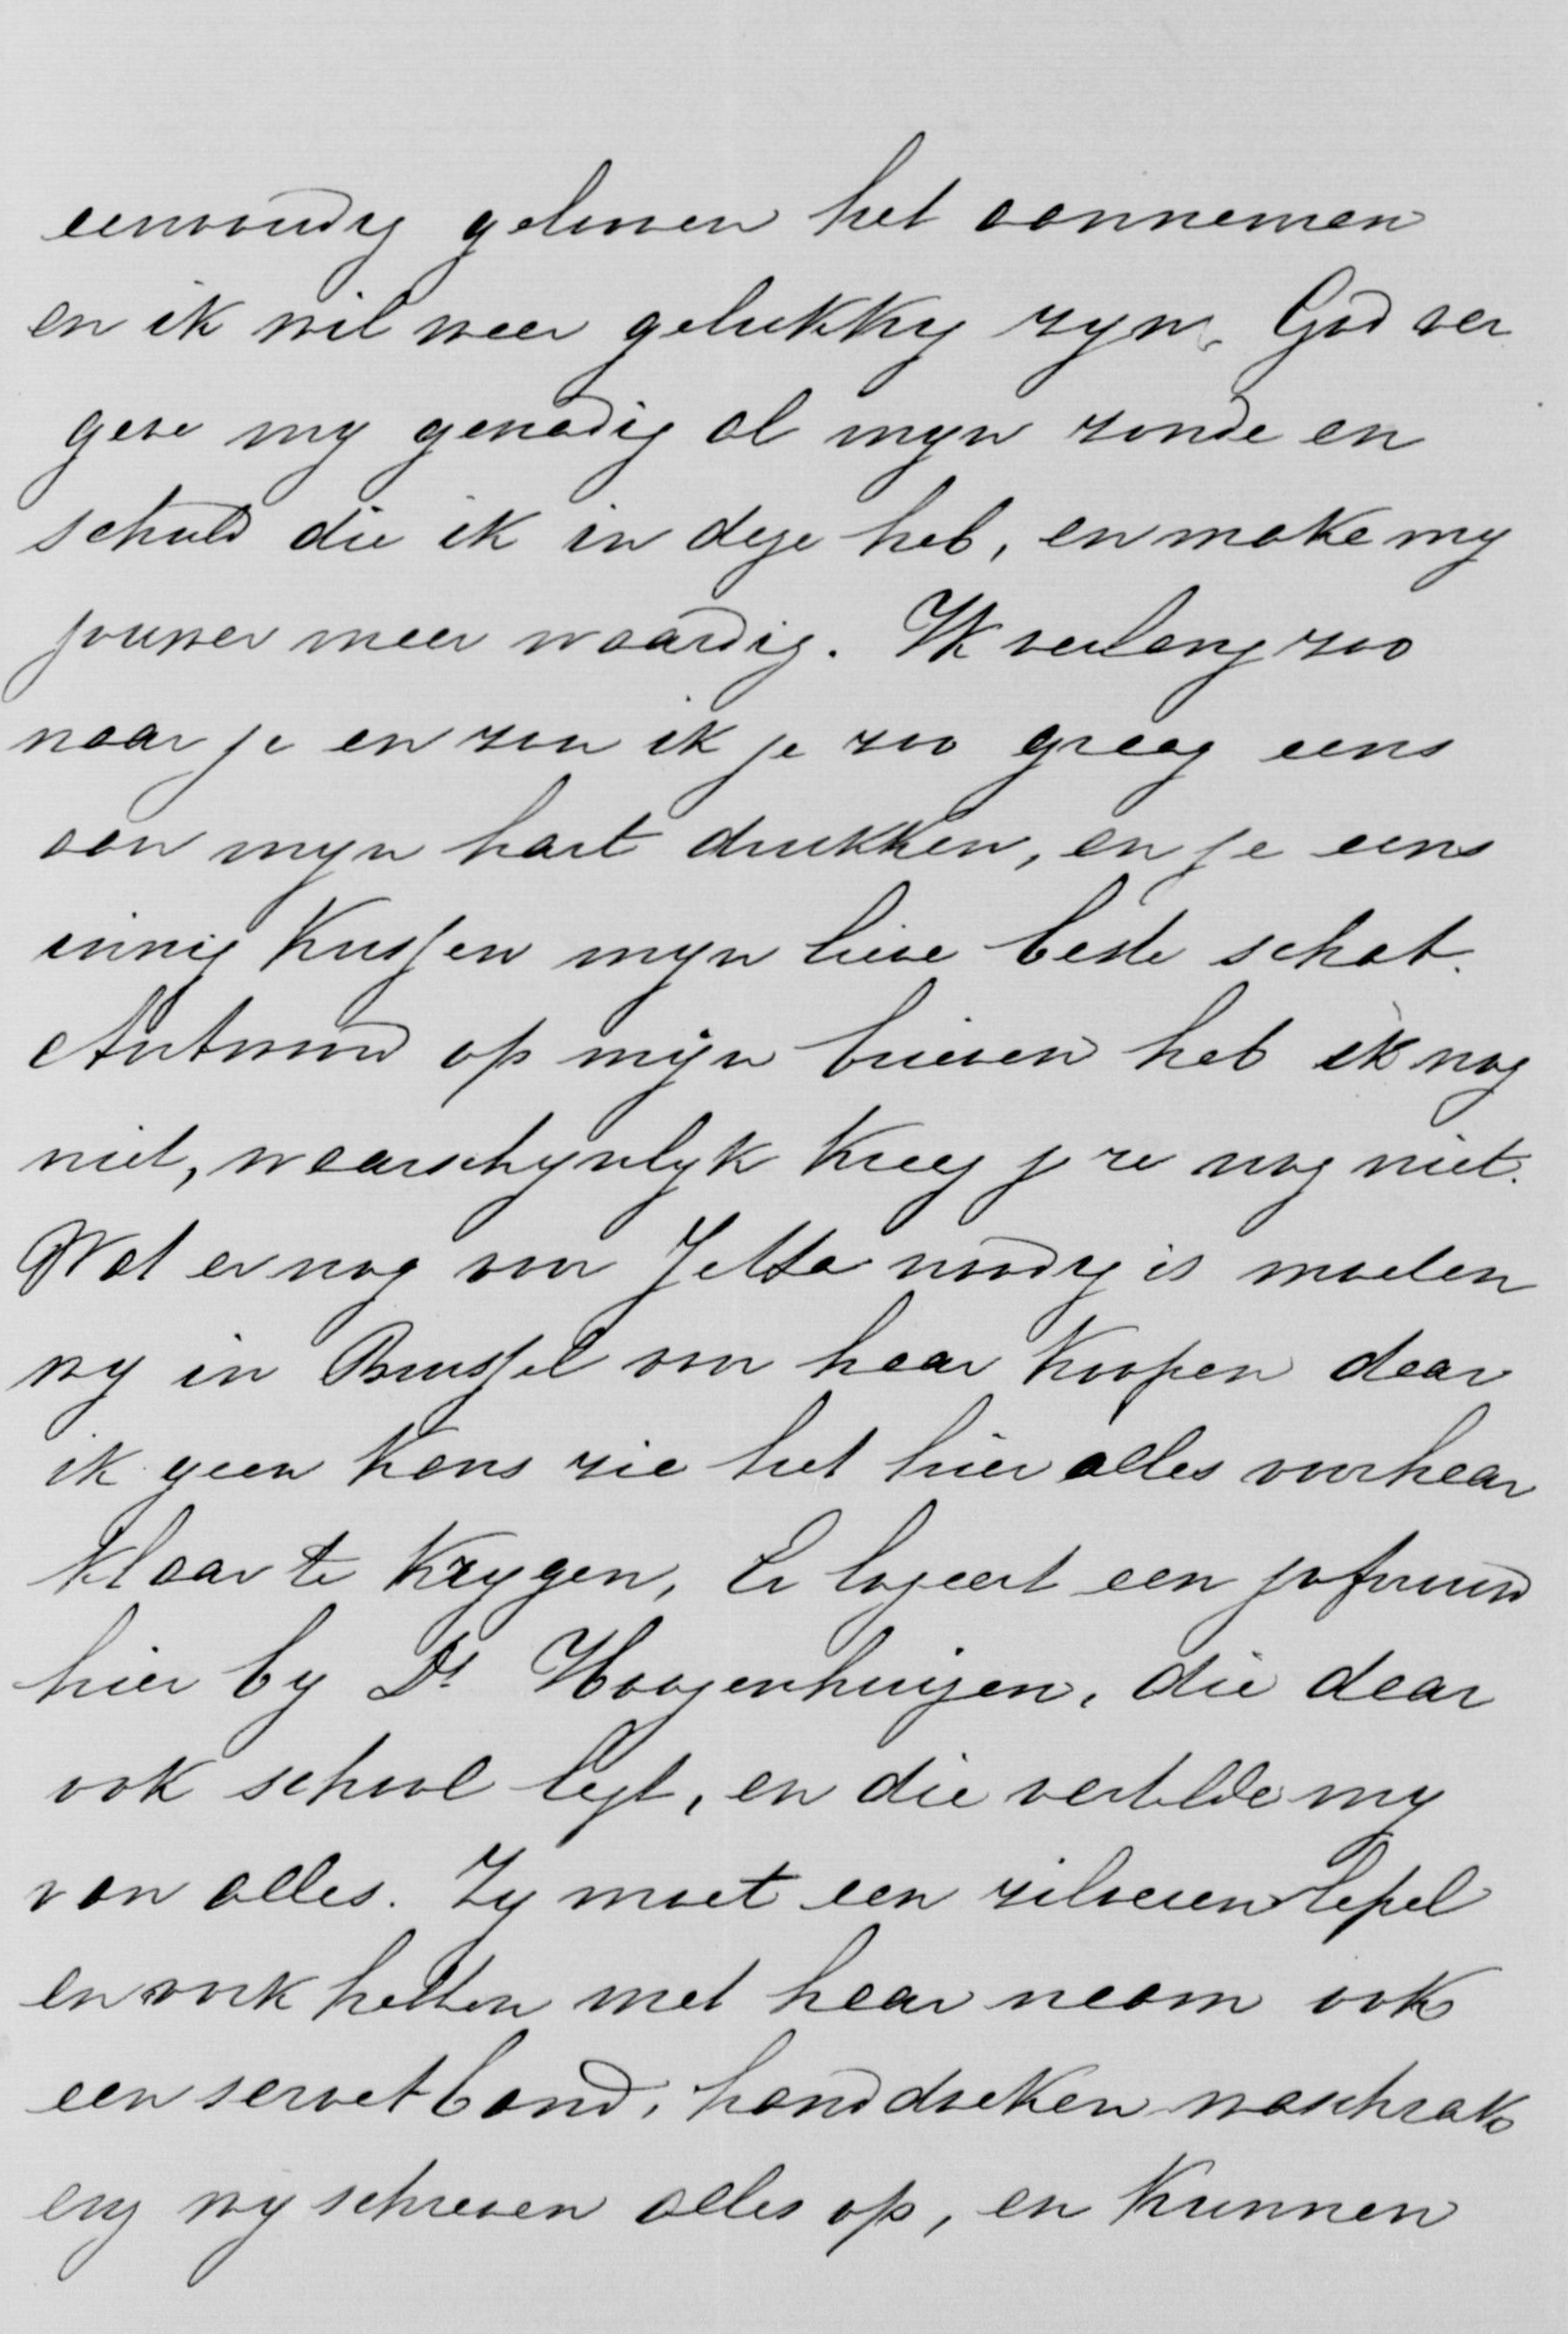 eenvoudig gelooven het aannemen
en ik wil weer gelukkig zyn. God ver
geve my genadig al myn zonde en
schuld die ik in deze heb, en make my
jouwer meer waardig. Ik verlang zoo
naar je en zou ik je zoo graag eens
aan myn hart drukken, en je eens
innig kussen myn lieve beste schat.
Antwoord op mijn brieven heb ik nog
niet, waarschynlyk kreeg je ze nog niet.
Wat er nog voor Jetta noodig is moeten
wy in Brussel voor haar koopen daar
ik geen kans zie het hier alles voor haar
klaar te krygen, Er logeert een jofvrouw
hier by Ds Hoogenhuizen, die daar
ook school legt, en die vertelde my
van alles. Zy moet een zilveren lepel
en vork hebben met haar naam ook
een servetband, handdoeken waschzak
enz wy schreven alles op, en kunnen